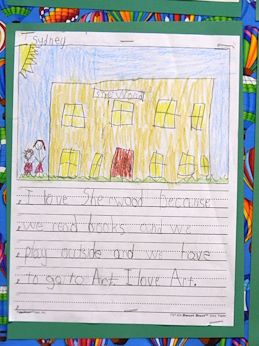 Sydney
I love Sherwood because
we read books and we
play outside and we have
to go to Art. I love Art.